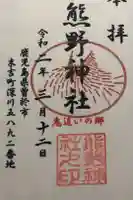 奉拝
熊野神社
令和二年三月十二日
鬼追いの郷
鹿児島県曽於市
末吉町深川五八九二番地
熊野神社之印